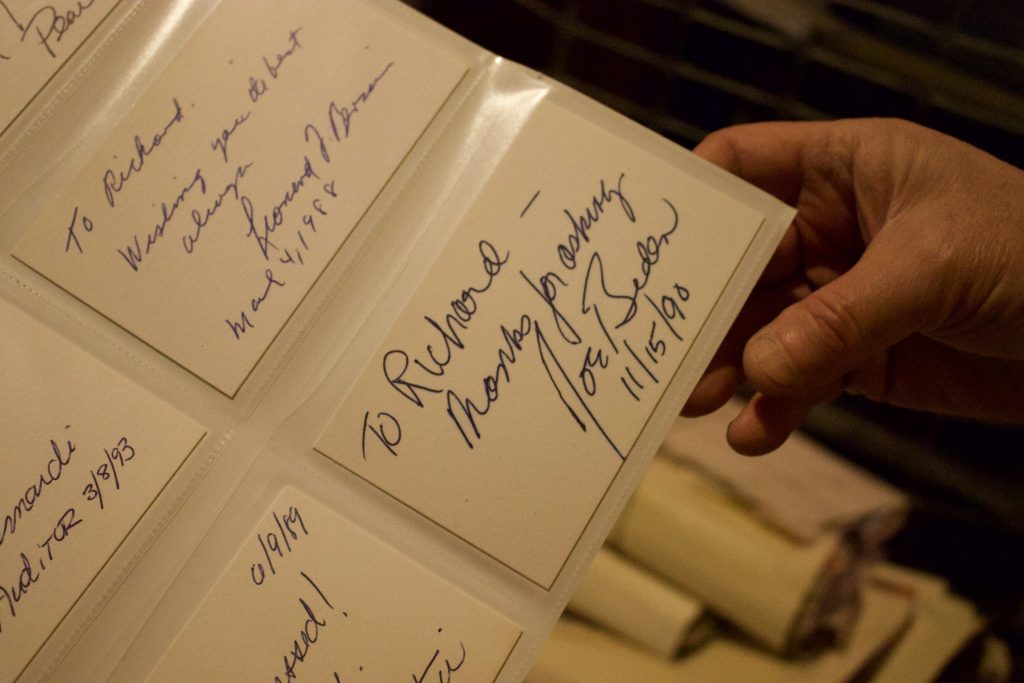 Pear
To Richard.
Wishing you the best
always
Leonard J.
4, 1988
To Richard —
Thanks for asking
Joe Biden
11/15/90
nardi
Auditor 3/8/93
6/9/89
ssed!